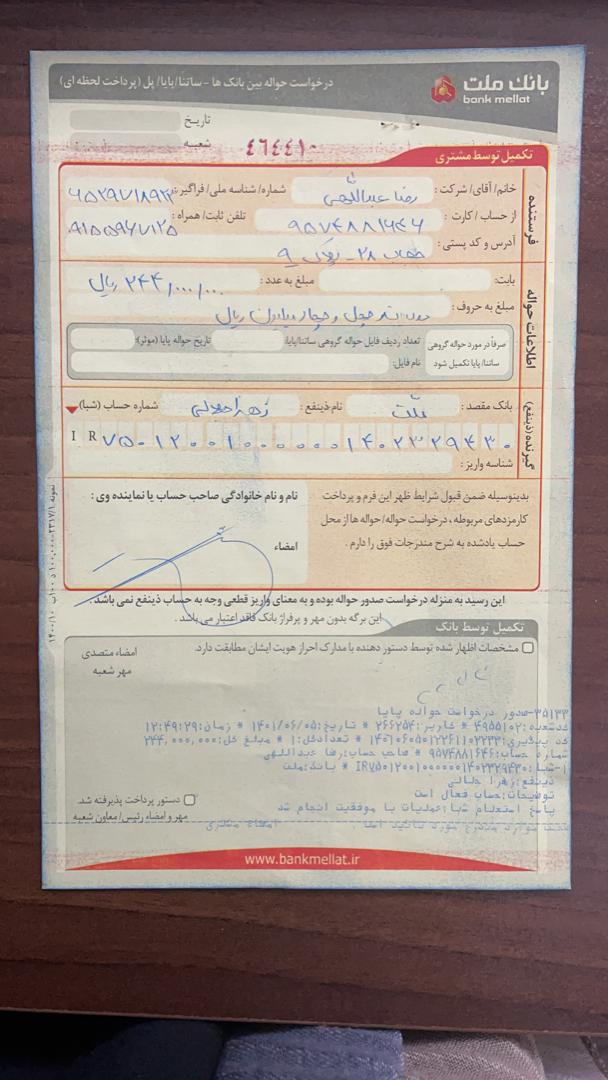 بانک ملت
bank mellat
درخواست حواله بین بانک ها - ساتنا/پایا/ پل (پرداخت لحظه ای)
تاریخ
شعبه
۴۶۴۴۱۰
تکمیل توسط مشتری
فرستنده
خانم/ آقای/ شرکت : رضا عبداللهی شماره/ شناسه ملی/ فراگیر :
از حساب / کارت : ۹۵۷۴۸۸۱۶۴۶ تلفن ثابت/ همراه : ۹۱۵۵۹۶۷۱۲۵
آدرس و کد پستی : ۲۸ - پلاک ۹
اطلاعات حواله
بابت: مبلغ به عدد : ۲۴۴,۰۰۰,۰۰۰ ریال
مبلغ به حروف : دویست و چهل و چهار میلیون ریال
صرفاً در مورد حواله گروهی ساتنا/ پایا تکمیل شود
تعداد ردیف فایل حواله گروهی ساتنا/پایا: تاریخ حواله پایا (موثر):
نام فایل:
گیرنده (ذینفع)
بانک مقصد : ملت نام ذینفع : زهرا جلالی شماره حساب (شبا)
IR ۷۵۰۱۲۰۰۱۰۰۰۰۰۰۱۴۰۲۳۲۹۴۳۰
شناسه واریز :
بدینوسیله ضمن قبول شرایط ظهر این فرم و پرداخت
کارمزدهای مربوطه ، درخواست حواله/ حواله ها از محل
حساب یادشده به شرح مندرجات فوق را دارم .
نام و نام خانوادگی صاحب حساب یا نماینده وی :
امضاء
این رسید به منزله درخواست صدور حواله بوده و به معنای واریز قطعی وجه به حساب ذینفع نمی باشد .
این برگه بدون مهر و پرفراژ بانک فاقد اعتبار می باشد .
تکمیل توسط بانک
مشخصات اظهار شده توسط دستور دهنده با مدارک احراز هویت ایشان مطابقت دارد.
امضاء متصدی
مهر شعبه
۳۵۱۳۳-صدور درخواست حواله پایا
کدشعبه:۴۹۵۵۱۰۲ * کاربر:۲۶۶۲۵۴ * تاریخ:۱۴۰۱/۰۶/۰۵ * زمان:۱۲:۴۹:۲۹
کد پیگیری:۱۴۰۱۰۶۰۵۰۱۲۲۶۱۱۰۲۲۳۳ * تعدادکل:۱ * مبلغ کل:۲۴۴,۰۰۰,۰۰۰
شماره حساب:۹۵۷۴۸۸۱۶۴۶ * صاحب حساب:رضا عبداللهی
۱-شبا:IR۷۵۰۱۲۰۰۱۰۰۰۰۰۰۱۴۰۲۳۲۹۴۳۰ * بانک:ملت
ذینفع:زهرا جلالی
توضیحات:حساب فعال است
پاسخ استعلام شبا:عملیات با موفقیت انجام شد
دستور پرداخت پذیرفته شد.
مهر و امضاء رئیس/ معاون شعبه
www.bankmellat.ir